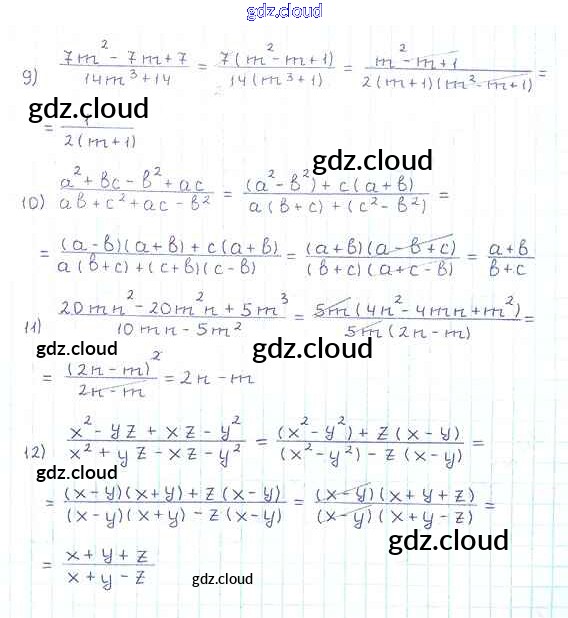 gdz.cloud
9) (7m² - 7m + 7)/(14m³ + 14) = 7(m² - m + 1)/14(m³ + 1) = (m² - m + 1)/2(m + 1)(m² - m + 1) =
gdz.cloud
= 1/2(m + 1)
gdz.cloud
10) (a² + bc - b² + ac)/(ab + c² + ac - b²) = ((a² - b²) + c(a + b))/(a(b + c) + (c² - b²)) =
= ((a - b)(a + b) + c(a + b))/(a(b + c) + (c + b)(c - b)) = (a + b)(a - b + c)/(b + c)(a + c - b) = (a + b)/(b + c)
11) (20mn² - 20m²n + 5m³)/(10mn - 5m²) = 5m(4n² - 4mn + m²)/5m(2n - m) =
gdz.cloud gdz.cloud
= (2n - m)²/(2n - m) = 2n - m
12) (x² - yz + xz - y²)/(x² + yz - xz - y²) = ((x² - y²) + z(x - y))/((x² - y²) - z(x - y)) =
gdz.cloud
= ((x - y)(x + y) + z(x - y))/((x - y)(x + y) - z(x - y)) = (x - y)(x + y + z)/(x - y)(x + y - z) =
gdz.cloud
= (x + y + z)/(x + y - z)
gdz.cloud